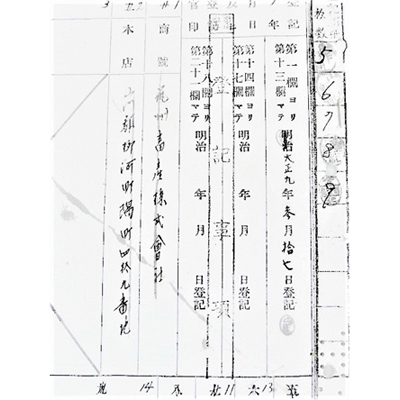 枚数
5
6
7
8
9
第一欄ヨリ
第十三欄マテ
明治大正九年参月拾七日登記
第十四欄ヨリ
第十七欄マテ
明治 年 月 日登記
登記事項
第十八欄ヨリ
第二十一欄マテ
明治 年 月 日登記
商號
州畜産株式會社
本店
山門郡柳河町隅町四拾九番地
13
六
11
14